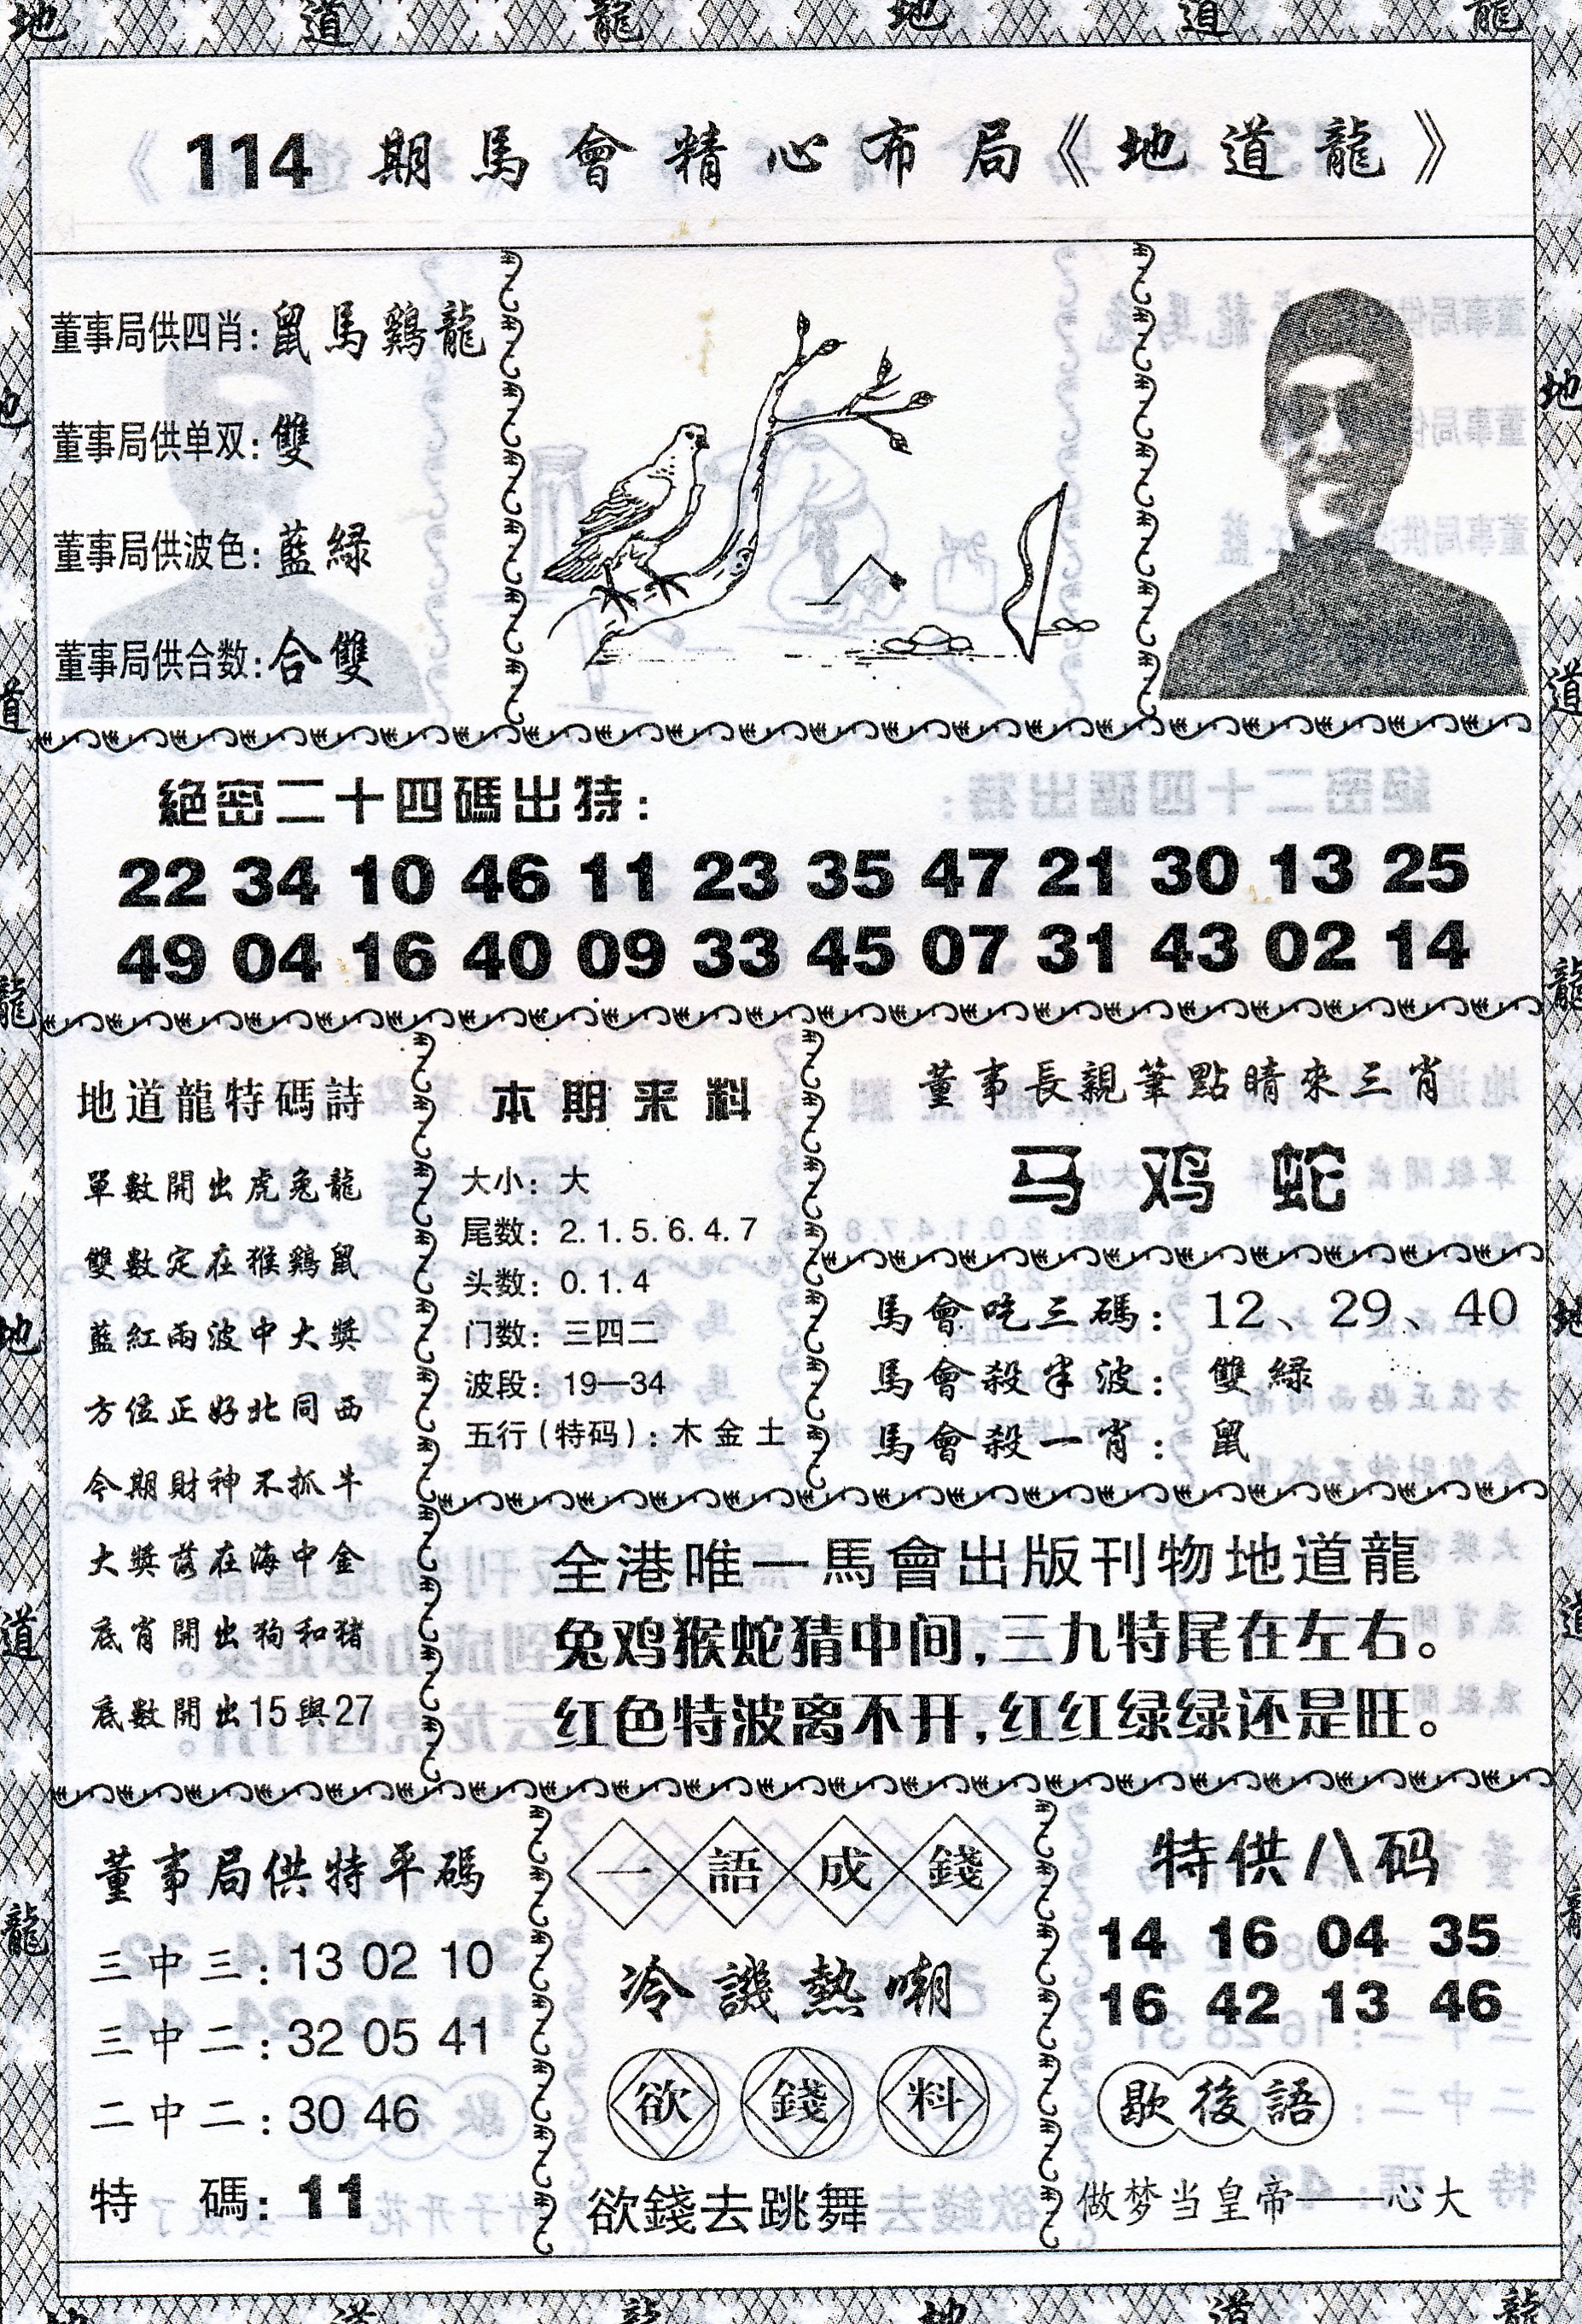 114 期馬會精心布局《地道龍》
董事局供四肖：鼠馬鷄龍
董事局供单双：雙
董事局供波色：藍緑
董事局供合数：合雙
絕密二十四碼出特：
22 34 10 46 11 23 35 47 21 30 13 25
49 04 16 40 09 33 45 07 31 43 02 14
地道龍特碼詩
單數開出虎兔龍
雙數定在猴鷄鼠
藍紅兩波中大獎
方位正好北同西
今期財神不抓牛
大獎落在海中金
底肖開出狗和猪
底數開出15與27
本期来料
大小：大
尾数：2.1.5.6.4.7
头数：0.1.4
门数：三四二
波段：19—34
五行（特码）：木金土
董事長親筆點睛來三肖
马鸡蛇
馬會吃三碼：12、29、40
馬會殺半波：雙緑
馬會殺一肖：鼠
全港唯一馬會出版刊物地道龍
兔鸡猴蛇猜中间，三九特尾在左右。
红色特波离不开，红红绿绿还是旺。
董事局供特平碼
三中三：13 02 10
三中二：32 05 41
二中二：30 46
特碼：11
一語成錢
冷譏熱嘲
欲錢料
欲錢去跳舞
特供八码
14 16 04 35
16 42 13 46
歇後語
做梦当皇帝——心大